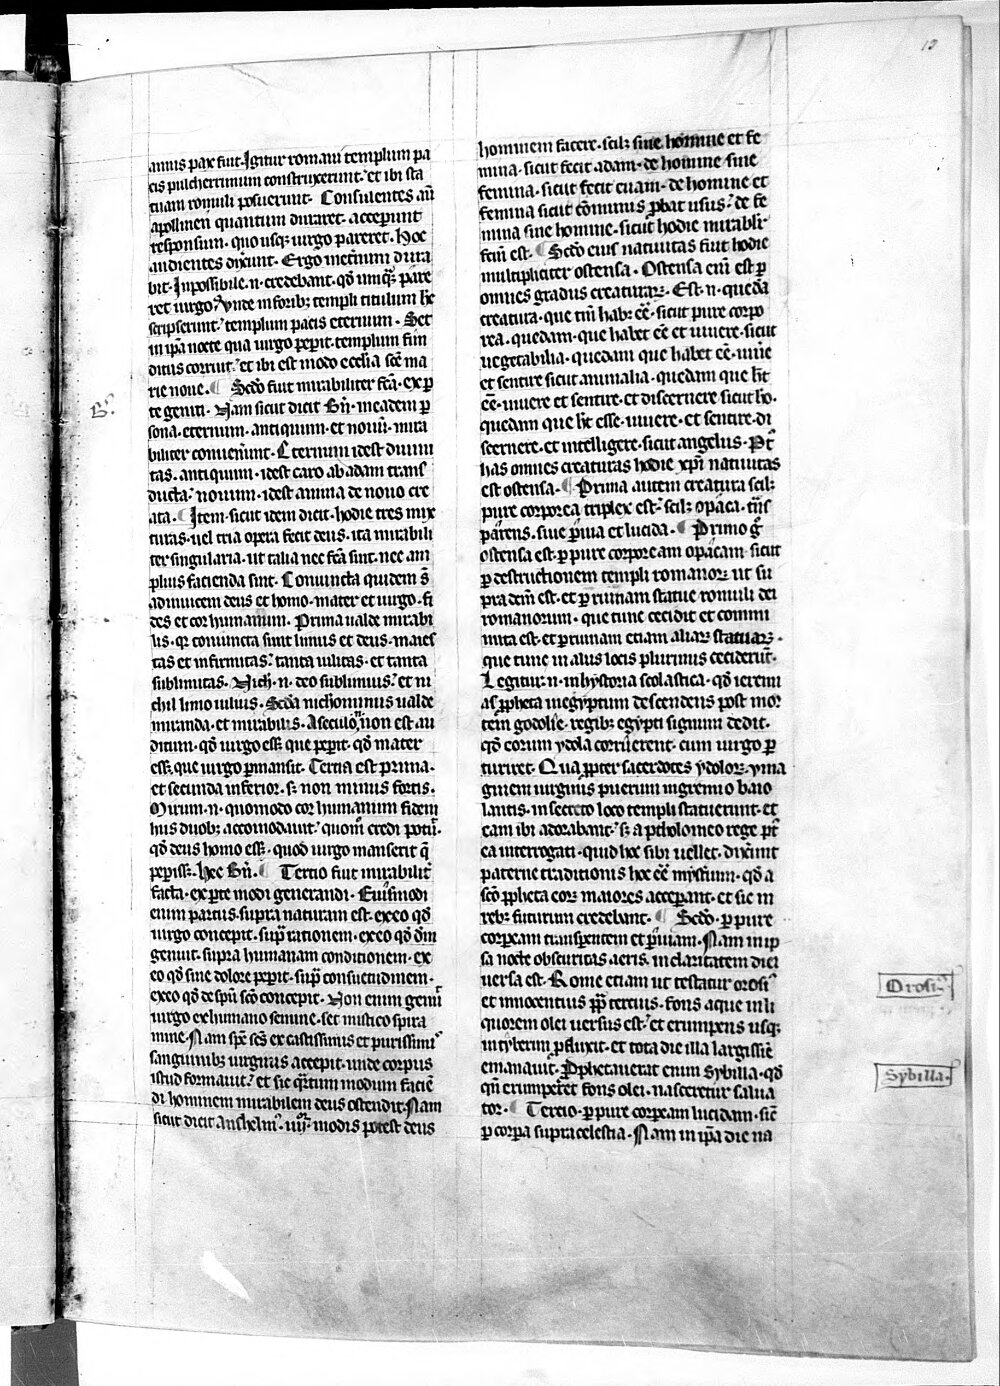 13
annis pax fuit. Igitur romani templum pa
cis pulcherrimum construxerunt. et ibi sta
tuam romuli posuerunt. Consulentes aũ
apollinem quantum duraret. acceperunt
responsum. quo usqꝫ uirgo pareret. Hoc
audientes dixerunt. Ergo ineternum dura
bit. Inpossibile .n. credebant. qđ unqͣꝫ pare
ret uirgo. Unde in foribꝫ templi titulum hũc
scripserunt. templum pacis eternum. Set
in ip̄a nocte qua uirgo peperit. templum fun
ditus corruit. et ibi est modo ecclia sc̄e ma
rie noue. ¶ Scđo fuit mirabiliter fc̄a. ex p
te geniti. Nam sicut dicit Bñ. in eadem ꝑ
sona. eternum. antiquum. et nouũ. mira
biliter conuenĩunt. Eternum idest diuini
tas. antiquum. idest caro ab adam trans
ducta. nouum. idest anima de nouo cre
ata. ¶ Item. sicut idem dicit. hodie tres mix
turas. uel tria opera fecit deus. ita mirabili
ter singularia. ut talia nec fc̄a sint. nec am
plius facienda sint. Coniuncta quidem s̄
adinuicem deus et homo. mater et uirgo. fi
des et cor humanum. Prima ualde mirabi
lis. qꝛ coniuncta sunt limus et deus. maies
tas et infirmitas. tanta uilitas. et tanta
sublimitas. Nich̃ .n. deo sublimius. et ni
chil limo uilius. Scđa nichominus ualde
miranda. et mirabilis. A seculo .n. non est au
ditum. qđ uirgo esset que peperit. qđ mater
esset que uirgo ꝑmansit. Tertia est prima.
et secunda inferior. sꝫ non minus fortis.
Mirum .n. quomodo cor humanum fidem
hiis duobꝫ accomodauit. quom̃ credi potuit.
qđ deus homo esset. quod uirgo manserit q̄
peperisset. Hec Bñ. ¶ Tertio fuit mirabilit̃
facta. ex parte modi generandi. Eiusmodi
enim partus. supra naturam est. ex eo qđ
uirgo concepit. supra rationem. ex eo qđ dm̃
genuit. supra humanam conditionem. ex
eo qđ sine dolore peperit. supra consuetudinem.
ex eo qđ de spũ sc̄o concepit. Non enim genuit
uirgo ex humano semine. set mistico spira
mine. Nam sp̄c sc̄s ex castissimis et purissimis
sanguinibꝫ uirginis accepit. unde corpus
istud formauit. et sic quartum modum faciẽ
di hominem mirabilem deus ostendit. Nam
sicut dicit anshelmꝰ. iiiior modis potest deus
hominem facere. scilꝫ sine homine et fe
mina. sicut fecit adam. de homine sine
femina. sicut fecit euam. de homine et
femina sicut cõmunis ꝓbat usus. de fe
mina sine homine. sicut hodie mirabilr̃
fctm̃ est. ¶ Scđo eius natiuitas fuit hodie
multipliciter ostensa. Ostensa eni est ꝑ
omnes gradus creaturaꝝ. Est .n. quedã
creatura. que tm̃ habꝫ eẽ. sicut pure corpo
rea. quedam. que habet eẽ et uiuere. sicut
uegetabilia. quedam que habet eẽ. uiuẽ
et sentire sicut animalia. quedam que hẽt
eẽ. uiuere et sentire. et discernere sicut hõ.
quedam que hẽt esse. uiuere. et sentire. di
scernere. et intelligere. sicut angelus. Per
has omnes creaturas hodie xpi natiuitas
est ostensa. ¶ Prima autem creatura scilꝫ
pure corporea triplex est. scilꝫ opaca. trãs
parens. siue ꝑuia et lucida. ¶ Primo g̃
ostensa est. ꝑ pure corpoream opacam. sicut
ꝑ destructionem templi romanoꝝ. ut su
pra dcm̃ est. et ꝑ ruinam statue romuli dei
romanorum. que tunc cecidit et commi
nuta est. et ꝑ ruinam etiam aliaꝝ statuaꝝ.
que tunc in aliis locis plurimis ceciderũt.
Legitur .n. in hystoria scolastica. qđ ieremi
as ꝓpheta in egyptum descendens post mor
tem godolie. regibꝫ egypti signum dedit.
qđ eorum ydola corruerent. cum uirgo ꝑ
turiret. Qua ꝓpter sacerdotes ydoloꝝ. yma
ginem uirginis puerum in gremio baio
lantis. in secreto loco templi statuerunt. et
eam ibi adorabant. sꝫ a ptholomeo rege pt̃
ea interrogati. quid hoc sibi uellet. dixerunt
paterne traditionis hoc eẽ mysterium. qđ a
sc̄o ꝓpheta eoꝝ maiores acceperant. et sic in
rebꝫ futurum credebant. ¶ Scđo. ꝑ pure
corpeam transparentem et ꝑuiam. Nam in ip
sa nocte obscuritas aeris. in claritatem diei
uersa est. Rome etiam ut testatur orosiꝰ
et innocentius pp̄ tercius. fons aque in li
quorem olei uersus est. et erumpens usqꝫ
in tyberim ꝓfluxit. et tota die illa largissie
emanauit. Prophetauerat enim Sybilla. qđ
qn̄ erumperet fons olei. nasceretur salua
tor. ¶ Tercio. ꝑ pure corpeam lucidam. sic̄
ꝑ corpa supracelestia. Nam in ip̄a die na
Bꝰ.
Orosiꝰ
Sybilla.